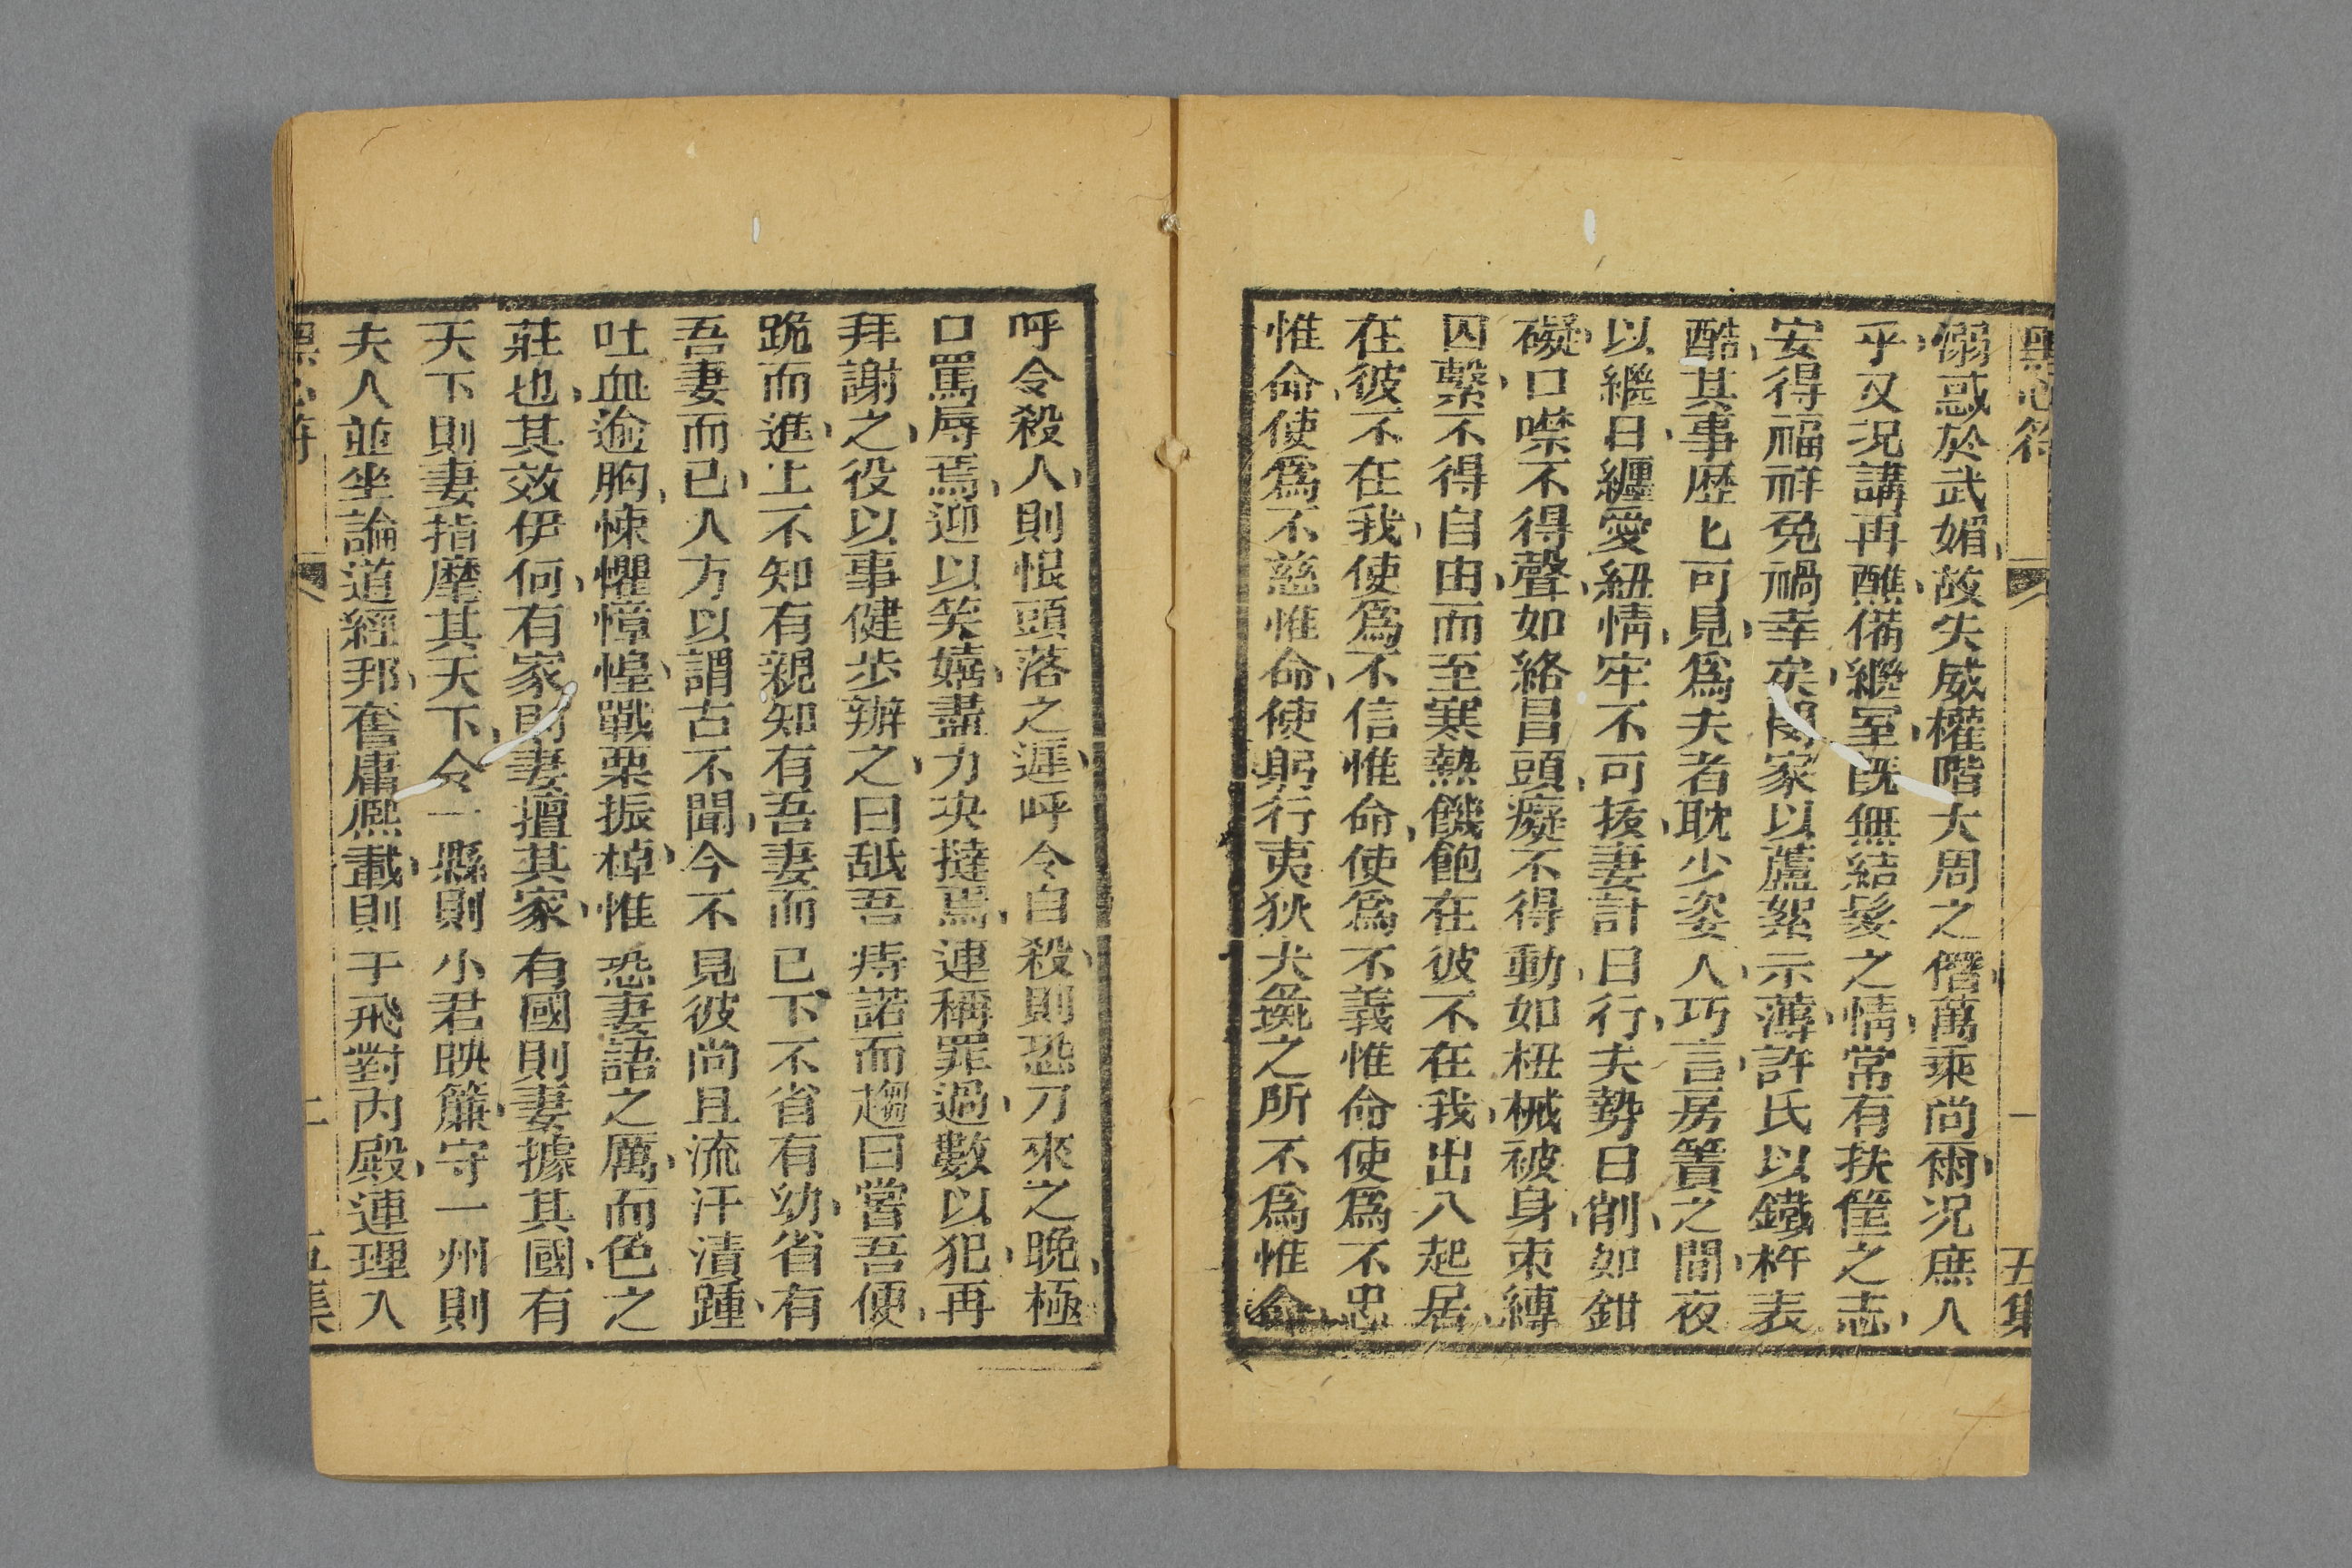 黑心符 一 五集
溺惑於武媚故失威權階大周之僭萬乘尚爾况庶人
乎又况講再醮備繼室既無結髮之情常有扶筐之志
安得福祥免禍幸矣閔家以蘆絮示薄許氏以鐵杵表
酷其事歴匕可見爲夫者耽少姿人巧言房簀之間夜
以繼日纏愛紐情牢不可拔妻計日行夫勢日削如鉗
礙口噤不得聲如絡冒頭癡不得動如杻械被身束縛
囚繫不得自由而至寒熱饑飽在彼不在我出入起居
在彼不在我使爲不信惟命使爲不義惟命使爲不忠
惟命使爲不慈惟命使躬行夷狄犬彘之所不爲惟命
呼令殺人則恨頭落之遲呼令自殺則恐刀來之晚極
口罵辱焉迎以笑嬉盡力决撻焉連稱罪過數以犯再
拜謝之役以事健步辦之曰舐吾痔諾而趨曰嘗吾便
跪而進上不知有親知有吾妻而已下不省有幼省有
吾妻而已人方以謂古不聞今不見彼尚且流汗漬踵
吐血逾胸悚懼慞惶戰栗振悼惟恐妻語之厲而色之
莊也其效伊何有家則妻擅其家有國則妻據其國有
天下則妻指麾其天下令一縣則小君映簾守一州則
夫人並坐論道經邦奮庸熙載則于飛對内殿連理入
黑心符 二 五集